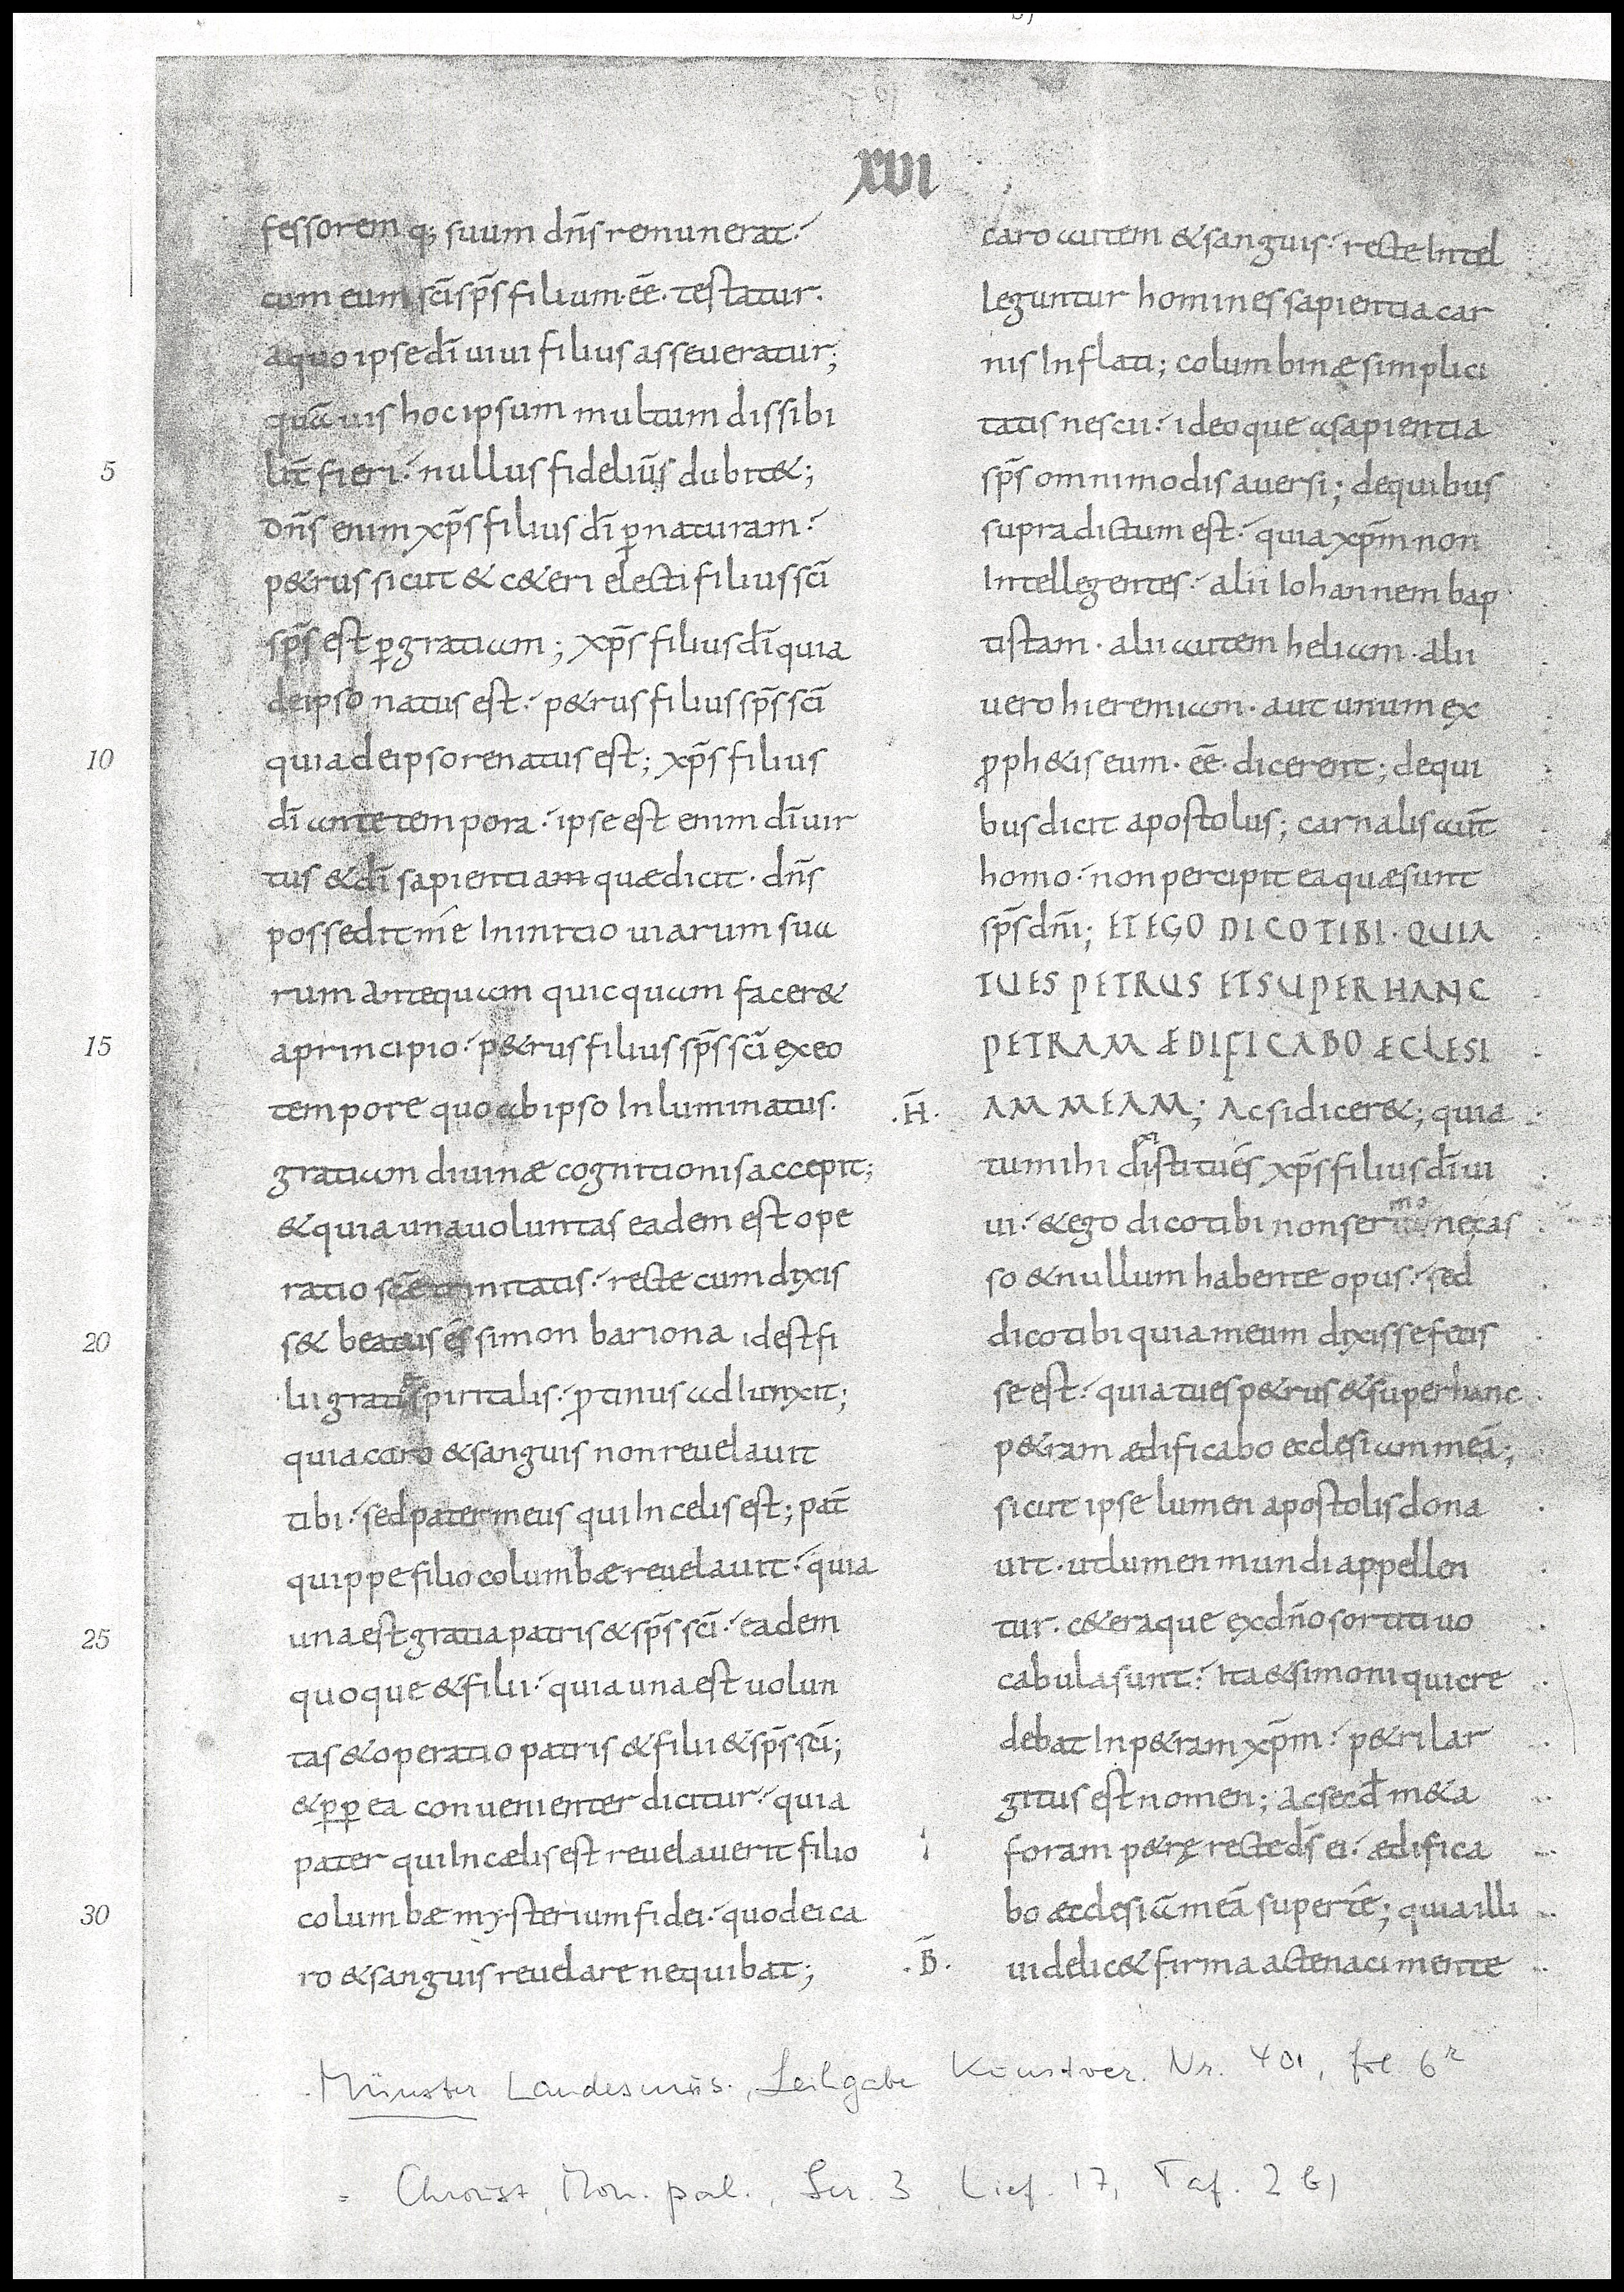 XVI
fessoremq; suum dn̄s remunerat·
cum eum sc̄i sp̄s filium· eē· testatur·
a quo ipse dī uiui filius asseueratur;
quāuis hoc ipsum multum dissibi
lit̄ fieri· nullus fideliūs dubit&;
Dn̄s enim xp̄s filius dī ꝑ naturam·
p&rus sicut & c&eri electi filius sc̄i
sp̄s est ꝑ gratiam; xp̄s filius dī quia
de ipso natus est· p&rus filius sp̄s sc̄i
quia de ipso renatus est; xp̄s filius
dī ante tempora· ipse est enim dī uir
tus & dī sapientiam quæ dicit· dn̄s
possedit me In initio uiarum sua
rum antequam quicquam facer&
a principio· p&rus filius sp̄s sc̄i ex eo
tempore quo ab ipso Inluminatus·
gratiam diuinæ cognitionis accepit;
& quia una uoluntas eadem est ope
ratio sc̄æ trinitatis· recte cum dixis
s& beatus es simon bariona id est fi
lii gratiæ spiritalis· ꝓtinus adiunxit;
quia caro & sanguis non reuelauit
tibi· sed pater meus qui In celis est; pat̄
quippe filio columbæ reuelauit· quia
una est gratia patris & sp̄s sc̄i· eadem
quoque & filii· quia una est uolun
tas & operatio patris & filii & sp̄s sc̄i;
& ꝑꝑea conuenienter dicitur· quia
pater qui In cælis est reuelauerit filio
columbæ mysterium fidei· quod ei ca
ro & sanguis reuelare nequibat;
caro autem & sanguis· recte Intel
leguntur homines sapientia car
nis Inflati; columbinæ simplici
tatis nescii· ideoque a sapientia
sp̄s omnimodis auersi; de quibus
supra dictum est· quia xp̄m non
Intellegentes· alii Iohannem bap
tistam· alii autem heliam· alii
uero hieremiam· aut unum ex
ꝓph&is eum· eē· dicerent; de qui
bus dicit apostolus; carnalis aut̄
homo· non percipit ea quæ sunt
sp̄s dn̄i; ET EGO DICO TIBI· QUIA
TU ES PETRUS ET SUPER HANC
PETRAM ÆDIFICABO ÆCLESI
·H̄· AM MEAM; Ac si dicer&; quia
tu mihi dixisti tu es xp̄s filius dī ui
ui· & ego dico tibi non sermone cas
so & nullum habente opus· sed
dico tibi quia meum dixisse fecis
se est· quia tu es p&rus & super hanc
p&ram ædificabo ecclesiam meā;
sicut ipse lumen apostolis dona
uit· ut lumen mundi appellen
tur· c&eraque ex dn̄o sortiti uo
cabula sunt· Ita & simoni qui cre
debat In p&ram xp̄m· p&ri lar
gitus est nomen; ac secd̄ m&a
foram p&rę recte dr̄ ei· ædifica
bo æcclesiā meā super tē; quia illi
·B̄· uidelic& firma ac tenaci mente
5
10
15
20
25
30
Münster Landesmus., Leihgabe Kunstver. Nr. 401, fol 6r
= Christ, Mon. pal., Ser. 3, Lief. 17, Taf. 2 b)